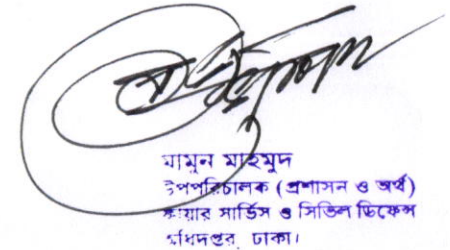 মামুন মাহমুদ
উপপরিচালক (প্রশাসন ও অর্থ)
ফায়ার সার্ভিস ও সিভিল ডিফেন্স
অধিদপ্তর, ঢাকা।